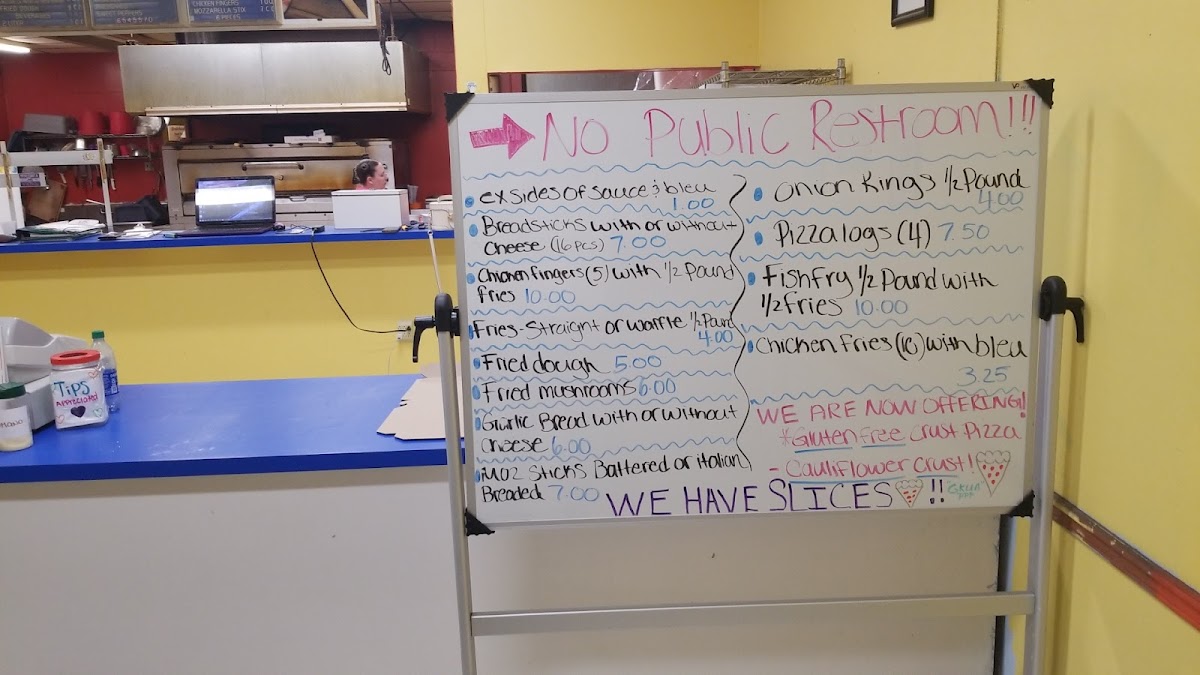 CHICKEN FINGERS
MOZZARELLA STIX
6 PIECES
NO Public Restroom!!!
ex sides of sauce & bleu
1.00
Breadsticks with or without
cheese (16 pcs) 7.00
Chicken fingers (5) with 1/2 Pound
fries 10.00
Fries-Straight or waffle 1/2 Pound
4.00
Fried dough 5.00
Fried mushrooms 6.00
Garlic Bread with or without
cheese 6.00
Moz Sticks Battered or italian
Breaded 7.00
onion Rings 1/2 Pound
4.00
Pizza logs (4) 7.50
Fish fry 1/2 Pound with
1/2 fries 10.00
Chicken fries (10) with bleu
3.25
WE ARE NOW OFFERING!!
*Gluten free crust Pizza
- Cauliflower crust!
WE HAVE SLICES !!
TIPS
APPRECIATED